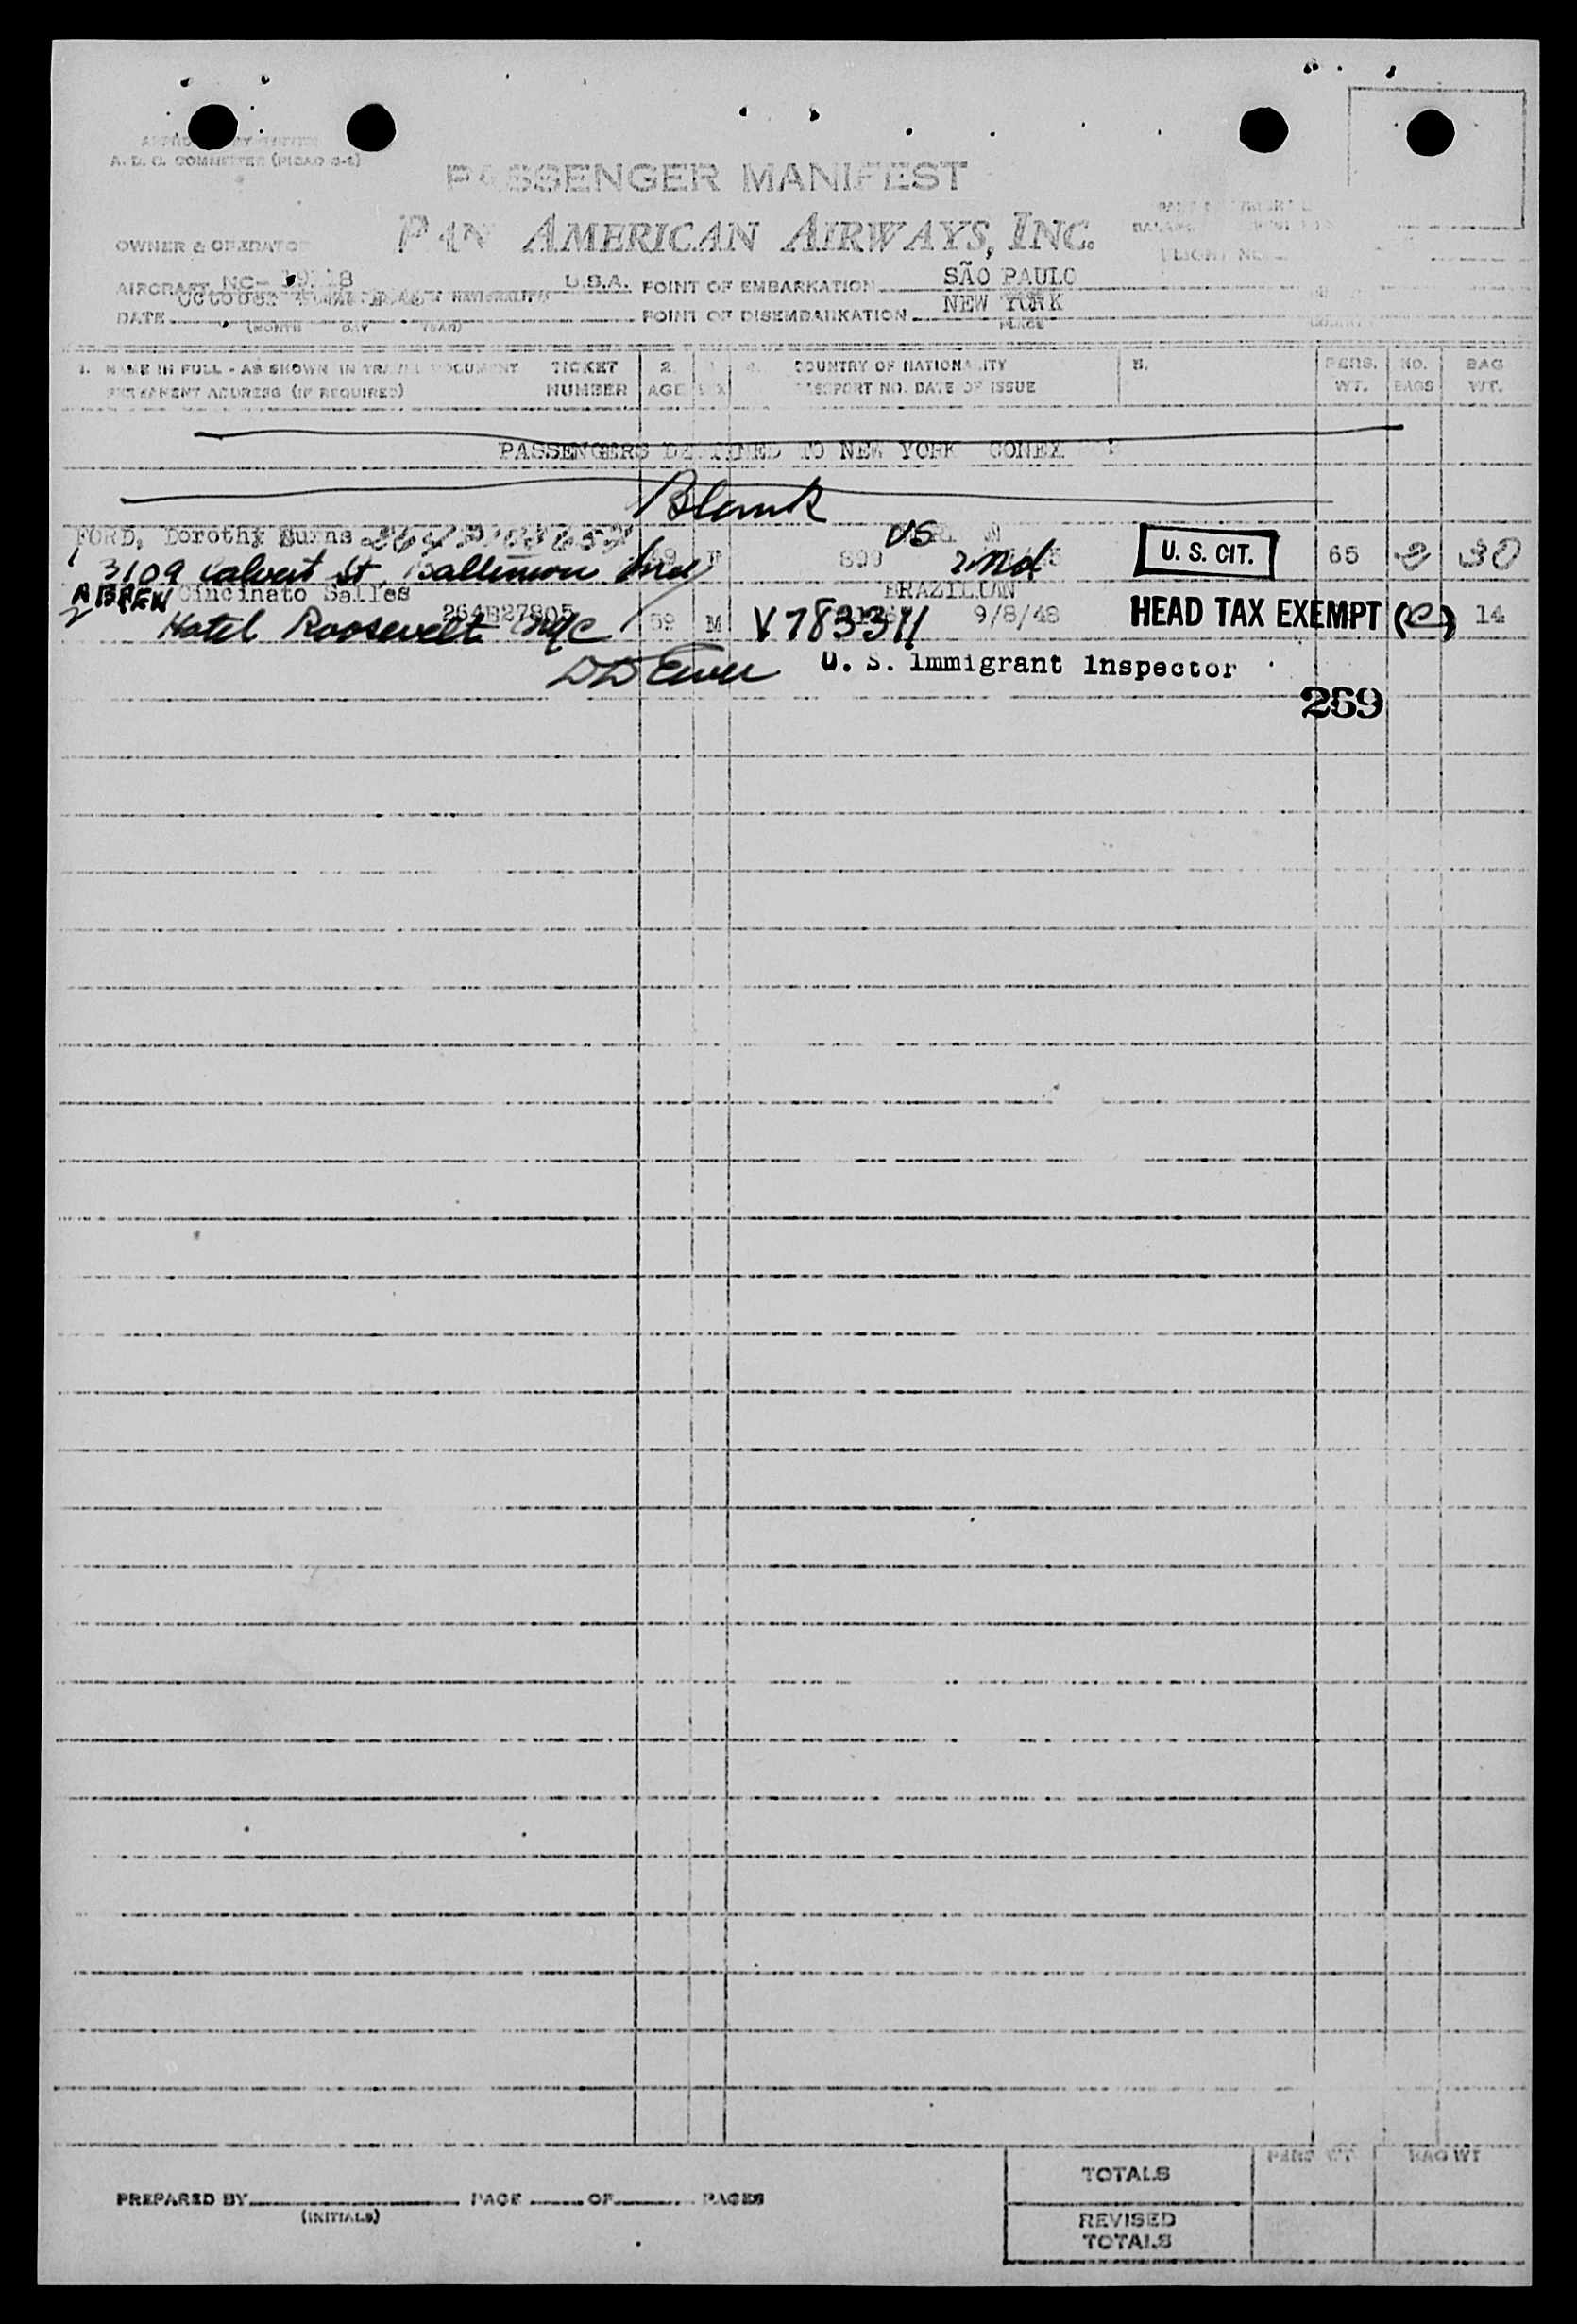 A. D. C. COMMITTEE (PICAO
PASSENGER MANIFEST
PAN AMERICAN AIRWAYS, INC.
OWNER & OPERATOR
AIRCRAFT NC- U.S.A. POINT OF EMBARKATION SÃO PAULO
DATE POINT OF DISEMBARKATION NEW YORK
(MONTH DAY YEAR) PLACE
1. NAME IN FULL - AS SHOWN IN TRAVEL DOCUMENT TICKET 2. 4. COUNTRY OF NATIONALITY 5. PERS. NO. BAG
PERMANENT ADDRESS (IF REQUIRED) NUMBER AGE SEX PASSPORT NO. DATE OF ISSUE WT. BAGS WT.
PASSENGERS DESTINED TO NEW YORK CONEX
Blank
FORD, Dorothy Burns US
1 3109 Calvert St, Baltimore Md F 2nd U. S. CIT. 65 2 30
ABREW Cincinato Salles BRAZILIAN
2 Hotel Roosevelt NYC 264B27805 59 M V783311 9/8/48 HEAD TAX EXEMPT (C) 14
U. S. Immigrant Inspector
269
TOTALS PERS WT BAG WT
PREPARED BY PAGE OF PAGES
(INITIALS)
REVISED
TOTALS